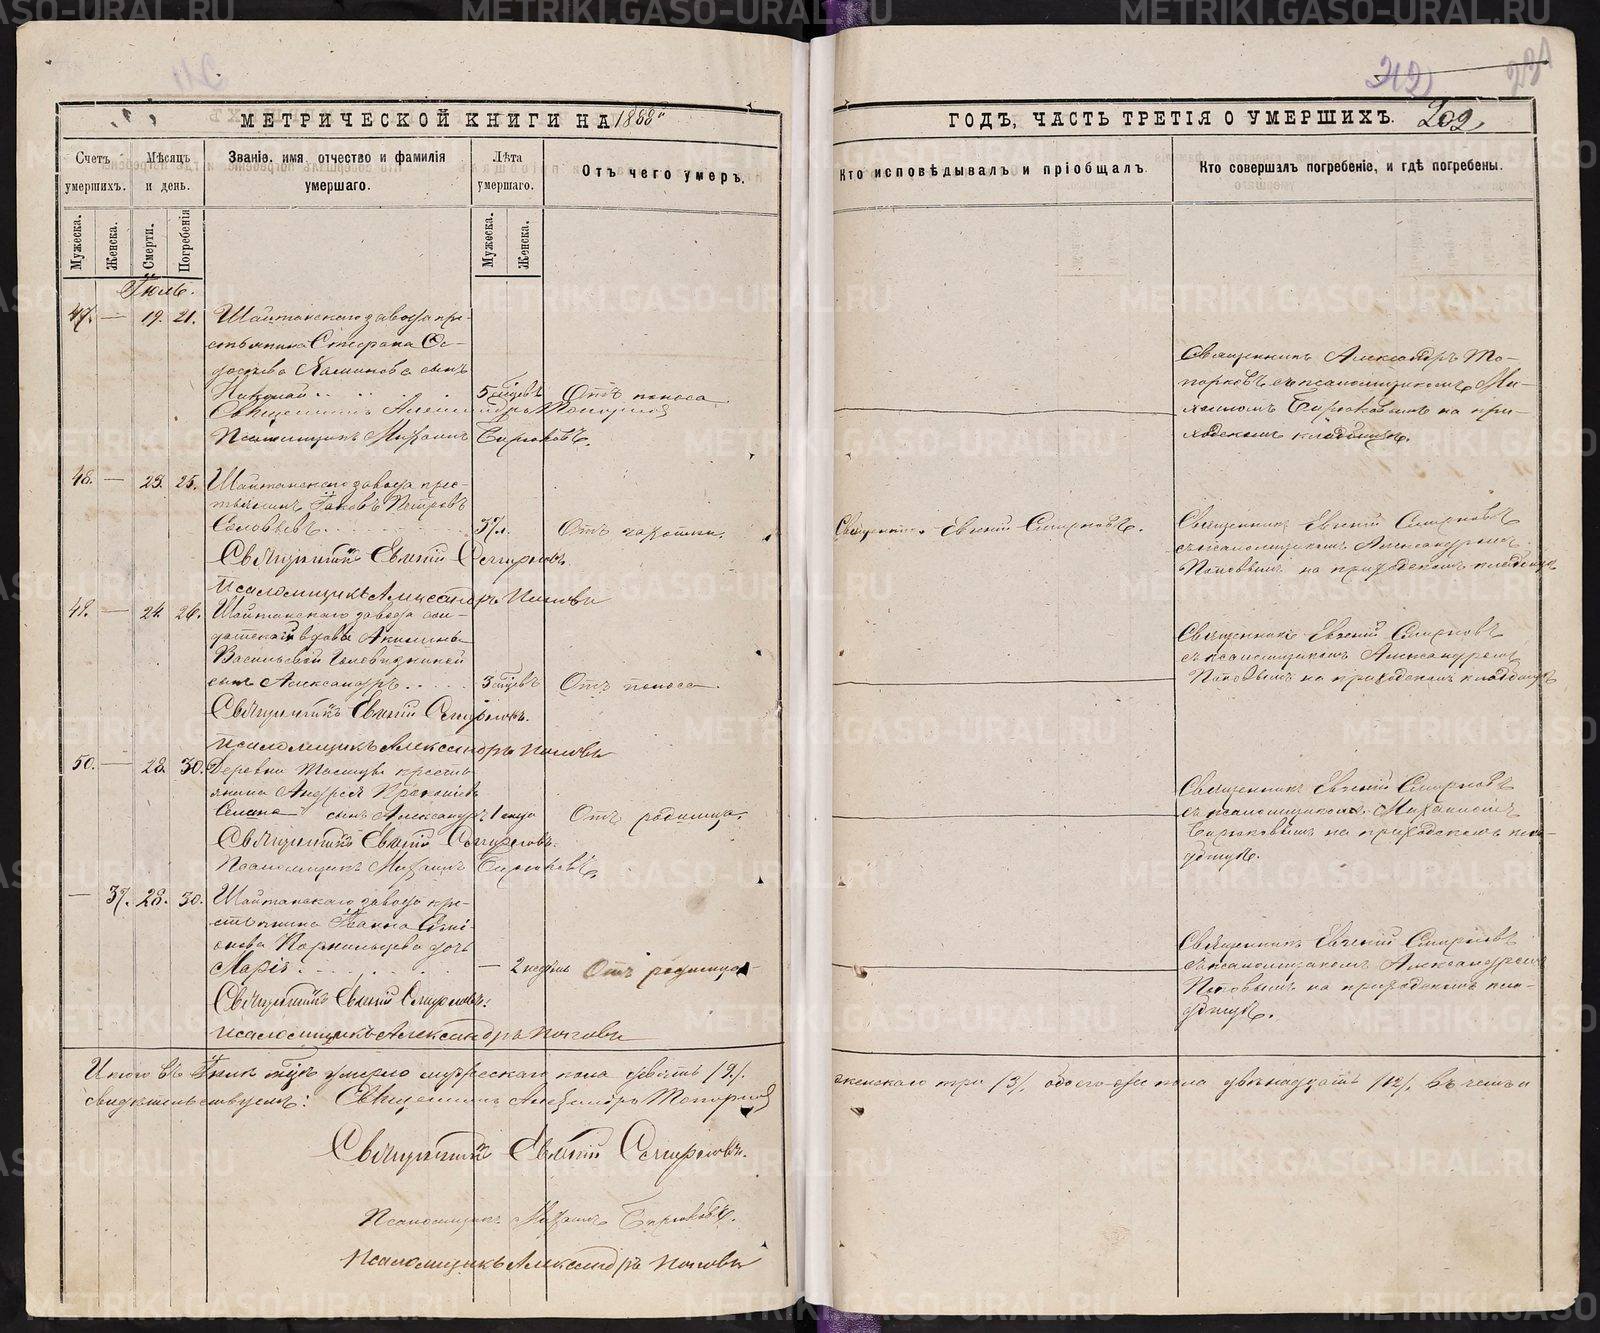 МЕТРИЧЕСКОЙ КНИГИ НА 1888й
ГОДЪ, ЧАСТЬ ТРЕТІЯ О УМЕРШИХЪ. 209
212
Счетъ умершихъ.
Мѣсяцъ и день.
Званіе, имя, отчество и фамилія умершаго.
Лѣта умершаго.
Отъ чего умеръ.
Кто исповѣдывалъ и пріобщалъ
Кто совершалъ погребеніе, и гдѣ погребены.
Мужеска.
Женска.
Смерти.
Погребенія
Мужеска.
Женска.
Іюль.
47. — 19. 21. Шайтанскаго завода кре-
стьянина Стефана
сынъ
Николай 5 мѣсцевъ Отъ поноса.
Священникъ Александръ Топорковъ
Псаломщикъ Михаилъ Бирюковъ.
Священникъ Александръ То-
порковъ съ псаломщикомъ Ми-
хаиломъ Бирюковымъ на при-
ходскомъ кладбищѣ.
48. — 23. 25. Шайтанскаго завода крес-
тьянинъ Іаковъ Петровъ
Соловьевъ 37 л. Отъ чахотки.
Священникъ Евгеній Смирновъ.
Псаломщикъ Александръ Поповъ
Священникъ Евгеній Смирновъ.
Священникъ Евгеній Смирновъ
съ псаломщикомъ Александромъ
Поповымъ на приходскомъ кладбищѣ
49. — 24. 26. Шайтанскаго завода сол-
датской вдовы Акилины
Васильевой
сынъ Александръ 3 мѣсцевъ Отъ поноса.
Священникъ Евгеній Смирновъ.
Псаломщикъ Александръ Поповъ
Священникъ Евгеній Смирновъ
съ псаломщикомъ Александромъ
Поповымъ на приходскомъ кладбищѣ
50. — 28. 30. Деревни крестья-
нина Андрея Прокопьева
сынъ Александръ 1 Отъ родимца.
Священникъ Евгеній Смирновъ.
Псаломщикъ Михаилъ Бирюковъ.
Священникъ Евгеній Смирновъ
съ псаломщикомъ Михаиломъ
Бирюковымъ на приходскомъ кла-
дбищѣ.
— 37. 28. 30. Шайтанскаго завода кре-
стьянина Іоанна
дочь
Марія — 2 недѣль Отъ родимца.
Священникъ Евгеній Смирновъ.
Псаломщикъ Александръ Поповъ
Священникъ Евгеній Смирновъ
съ псаломщикомъ Александромъ
Поповымъ на приходскомъ кла-
дбищѣ.
Итого въ Іюлѣ мцѣ умерло мужескаго пола девять /9/.
женскаго три /3/, обоего пола двѣнадцать /12/, въ чемъ и
свидѣтельствуемъ: Священникъ Александръ Топорковъ
Священникъ Евгеній Смирновъ.
Псаломщикъ Михаилъ Бирюковъ.
Псаломщикъ Александръ Поповъ
METRIKI.GASO-URAL.RU